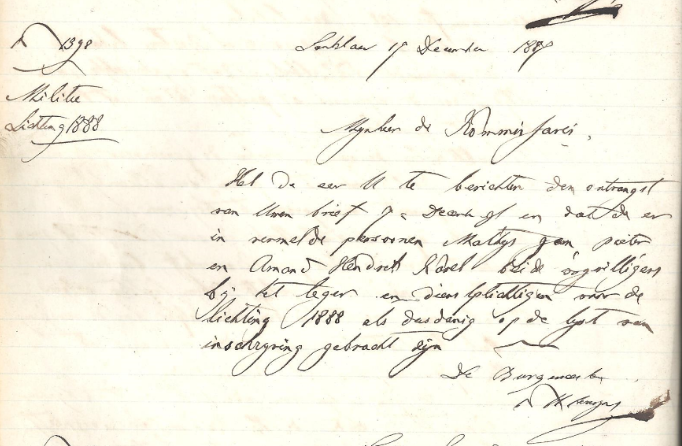 N 1398
Sint-Laur 17 December 1887
Militie
Lichting 1888
Mynheer de Kommissaris,
Heb de eer U te berichten den ontvangst
van Uwen brief 7n Decemb en dat de er
in vermelde persoonen Mathys Jan pieter
en Amand Hendrik Karel beide vrywilligers
by het leger en dienstplichtigen voor de
lichting 1888 als dusdanig op de lyst van
inschryving gebracht zyn
De Burgmeester